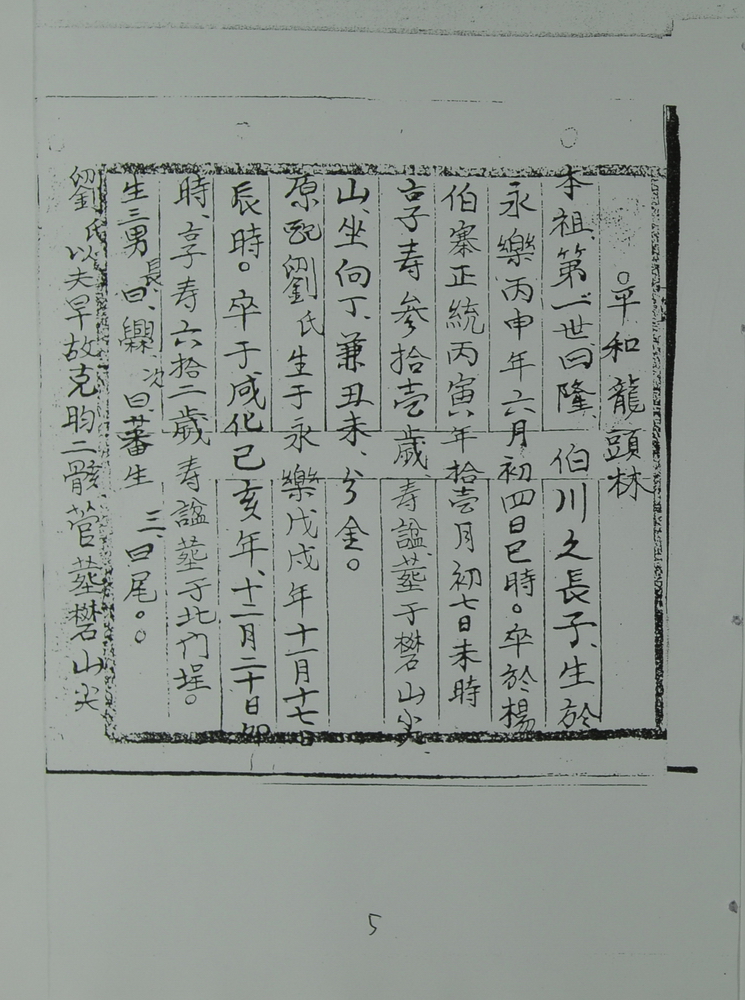 ○平和龍頭林
本祖、第一世曰隆、伯川之長子、生於
永樂丙申年六月初四日巳時。卒於楊
伯寨正統丙寅年拾壹月初七日未時
享壽參拾壹歲、壽諡、塟于礬山尖
山、坐向丁、兼丑未、分金。
原配劉氏生于永樂戊戌年十一月十七日
辰時。卒于成化己亥年、十二月二十日卯
時、享壽六拾二歲壽諡塟于北們埕。
生三男長曰、纙、次曰、蕃生三、曰尾。○
劉氏以夫早故克昀二骸菅塟礬山尖
5